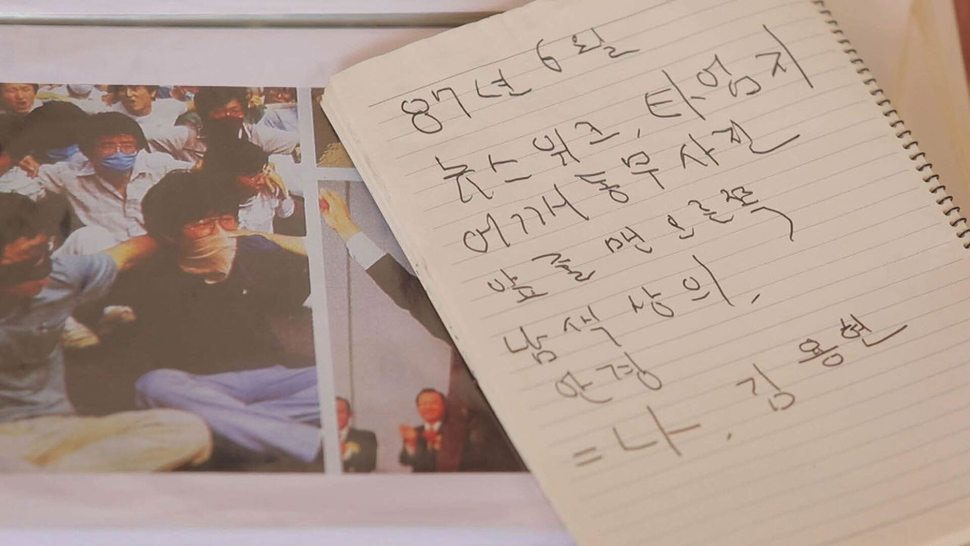 87년 6월
뉴스워크, 타임지
어깨동무 사진
앞줄 맨 오른쪽
남색 상의,
안경
= 나. 김용현